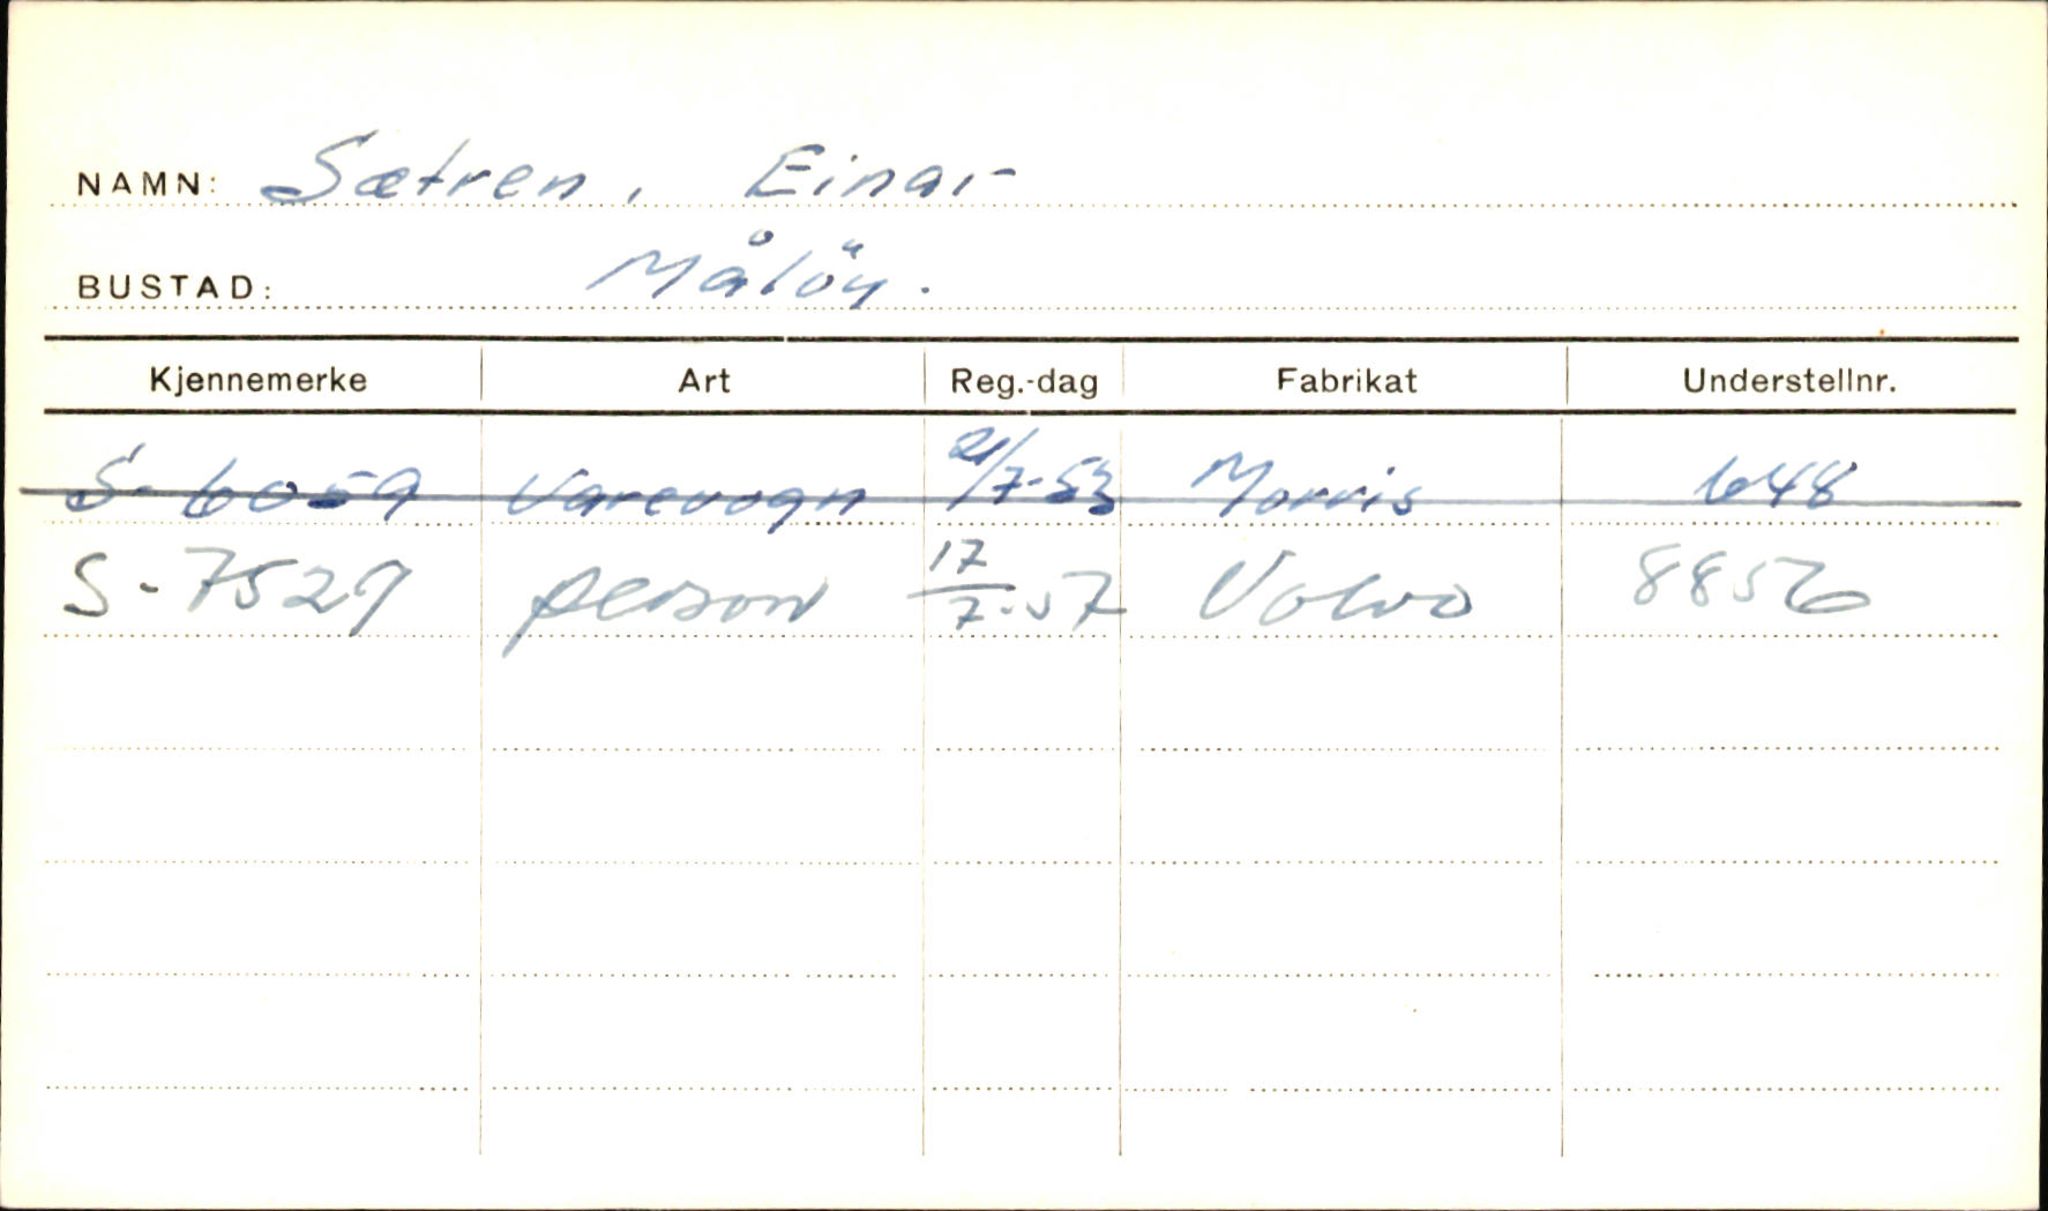 NAMN: Sætren, Einar
BUSTAD: Målöy.
Kjennemerke Art Reg.-dag Fabrikat Understellnr.
S- 6059 Varevogn 21/7-53 Morris 648
S-7529 person 17/7-57 Volvo 8856